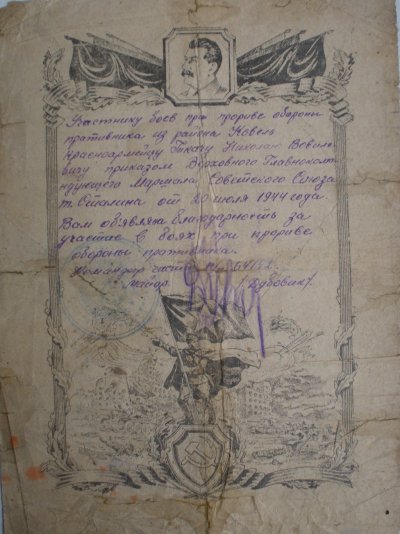 Участнику боев при прорыве обороны
противника из района Ковель
Красноармейцу Ткачу Николаю
приказом Верховного Главноком-
ндующего Маршала Советского Союза
т. Сталина от 20 июля 1944 года.
Вам объявлена благодарность за
участие в боях при прорыве
обороны противника.
Командир части п/п
майор